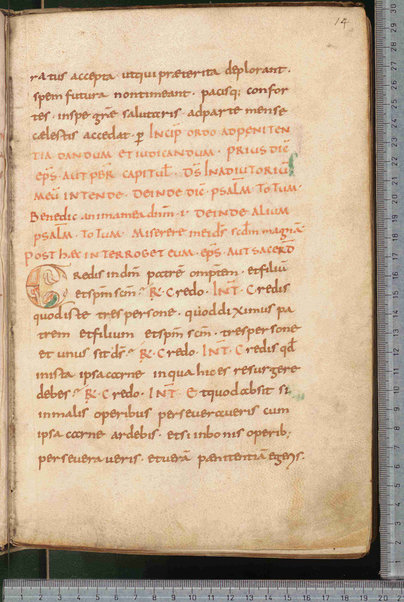 14
ratus accepta · ut qui præterita deplorant ·
spem futura non timeant · pacisq; confor
tes · in spe grē salutaris · ad parte mense
cælestis accedat · p̄ INCIP ORDO AD PENITEN
TIA DANDUM ET IUDICANDUM · PRIUS DIC̄
EPS̄ · AUT PB̄R · CAPITUL̄ · DS̄ IN ADIUTORIŪ
MEŪ INTENDE · DEINDE DIC̄ · PSALM̄ · TOTUM ·
Benedic anima mea dn̄m · i · DEINDE ALIUM
PSALM̄ · TOTUM · Miserere mei dr̄ scdm̄ magnā ·
POST HÆC INTERROGET EUM · EPS̄ · AUT SACERD̄
Credis in dn̄m patrē omptēm · et filiū
et spm̄ scm̄ ·' R̄ · Credo · INT̄ · Credis
quod iste tres persone · quod diximus pa
trem et filium et spm̄ scm̄ · tres persone
et unus sit ds̄ ·' R̄ · Credo · INT̄ · Credis qd̄
in ista ipsa carne in qua hic es resurgere
debes ·' R̄ · Credo · INT̄ · Et quod absit si
in malis operibus perseveraveris cum
ipsa carne ardebis · et si in bonis operib;
perseveraveris · et verā pænitentiā egeris ·